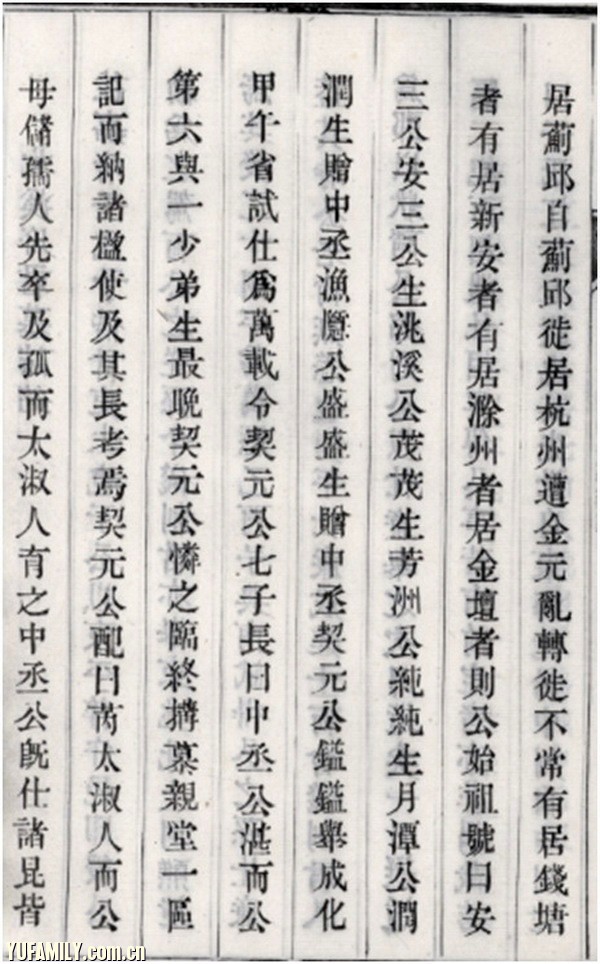 居薊邱自薊邱徙居杭州遭金元亂轉徙不常有居錢塘
者有居新安者有居滁州者居金壇者則公始祖號曰安
三公安三公生洮溪公茂茂生芳洲公純純生月潭公潤
潤生贈中丞漁隱公盛盛生贈中丞契元公鎰鎰舉成化
甲午省試仕爲萬載令契元公七子長曰中丞公湛而公
第六與一少弟生最晚契元公憐之臨終搆慕親堂一區
記而納諸楹使及其長考焉契元公配曰芮太淑人而公
母儲孺人先卒及孤而太淑人育之中丞公旣仕諸昆皆
YUFAMILY.com.cn